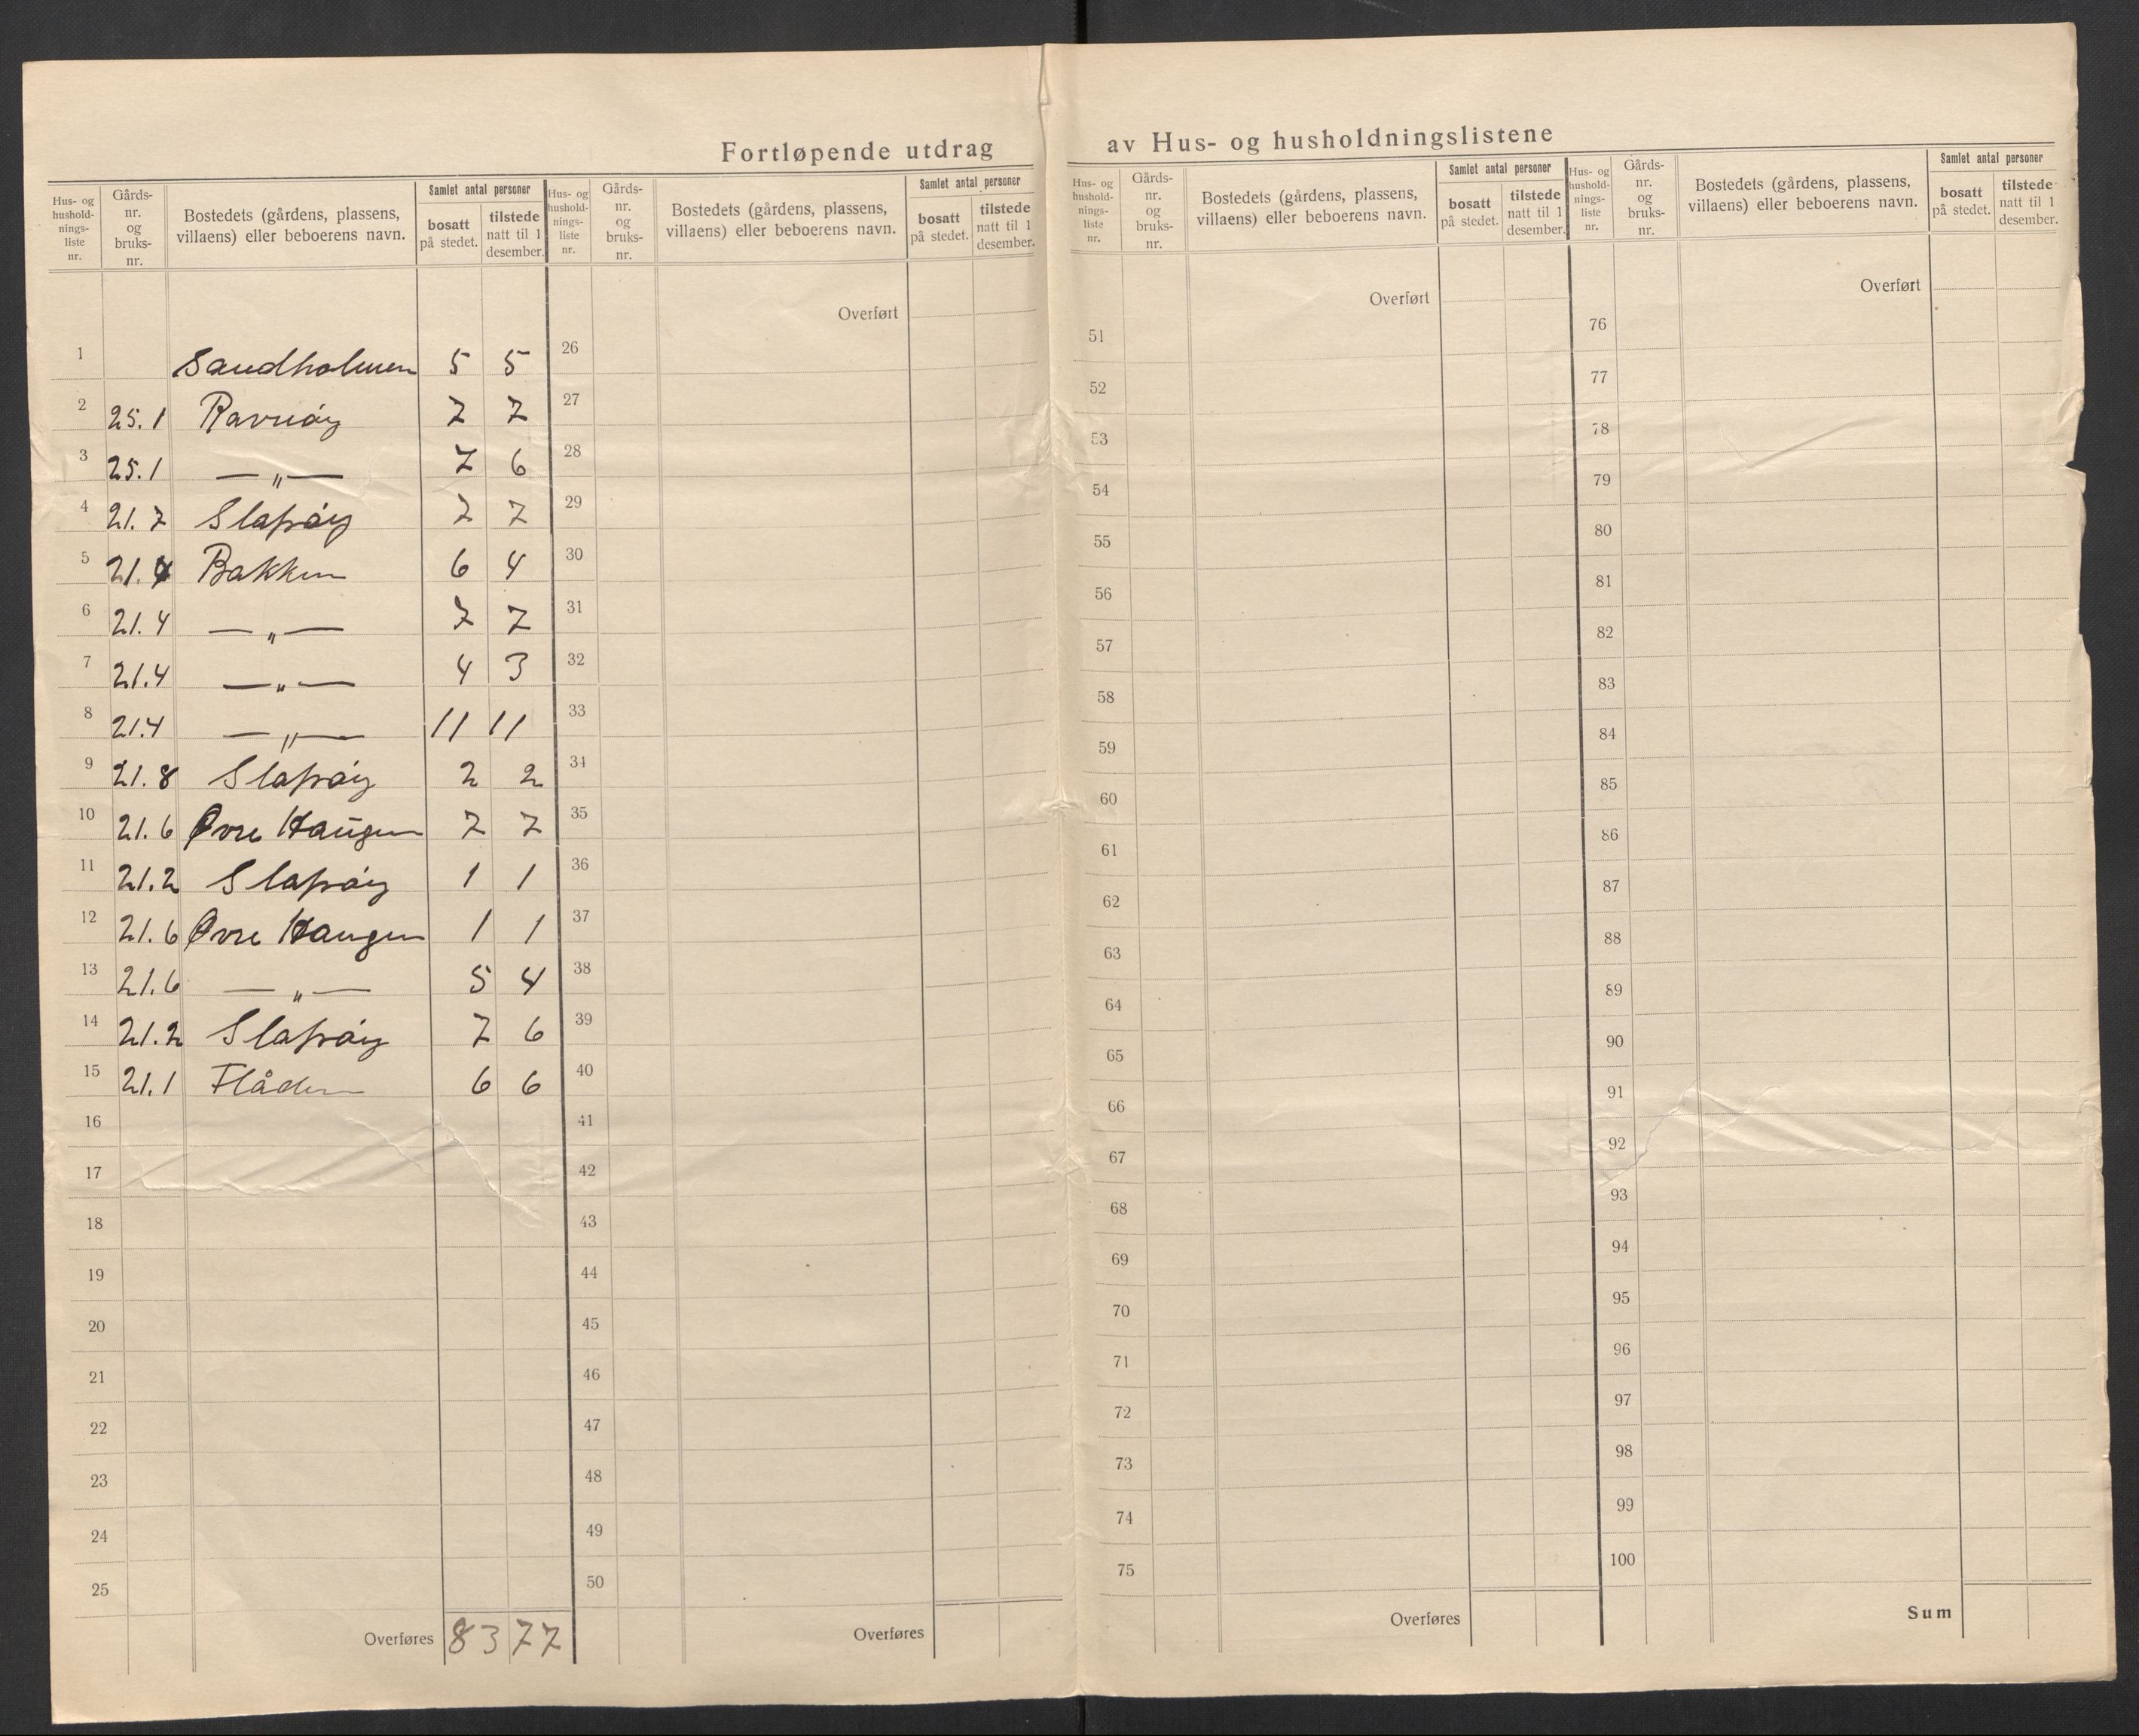 Fortløpende utdrag av Hus- og husholdningslistene
Hus- og hushold- nings- liste nr. | Gårds- nr. og bruks- nr. | Bostedets (gårdens, plassens, villaens) eller beboerens navn. | Samlet antal personer | bosatt på stedet. | tilstede natt til 1 desember.
Hus- og hushold- nings- liste nr. | Gårds- nr. og bruks- nr. | Bostedets (gårdens, plassens, villaens) eller beboerens navn. | Samlet antal personer | bosatt på stedet. | tilstede natt til 1 desember.
Hus- og hushold- nings- liste nr. | Gårds- nr. og bruks- nr. | Bostedets (gårdens, plassens, villaens) eller beboerens navn. | Samlet antal personer | bosatt på stedet. | tilstede natt til 1 desember.
Hus- og hushold- nings- liste nr. | Gårds- nr. og bruks- nr. | Bostedets (gårdens, plassens, villaens) eller beboerens navn. | Samlet antal personer | bosatt på stedet. | tilstede natt til 1 desember.
1 Sandholmen 5 5
2 25.1 Ravnöy 7 7
3 25.1 —„— 7 6
4 21.7 Slapöy 7 7
5 21.4 Bakken 6 4
6 21.4 —„— 7 7
7 21.4 —„— 4 3
8 21.4 —„— 11 11
9 21.8 Slapöy 2 2
10 21.6 Øvre Haugen 7 7
11 21.2 Slapöy 1 1
12 21.6 Øvre Haugen 1 1
13 21.6 —„— 5 4
14 21.2 Slapöy 7 6
15 21.1 Flåden 6 6
16
17
18
19
20
21
22
23
24
25
Overføres 83 77
Overført
26
27
28
29
30
31
32
33
34
35
36
37
38
39
40
41
42
43
44
45
46
47
48
49
50
Overføres
Overført
51
52
53
54
55
56
57
58
59
60
61
62
63
64
65
66
67
68
69
70
71
72
73
74
75
Overføres
Overført
76
77
78
79
80
81
82
83
84
85
86
87
88
89
90
91
92
93
94
95
96
97
98
99
100
Sum